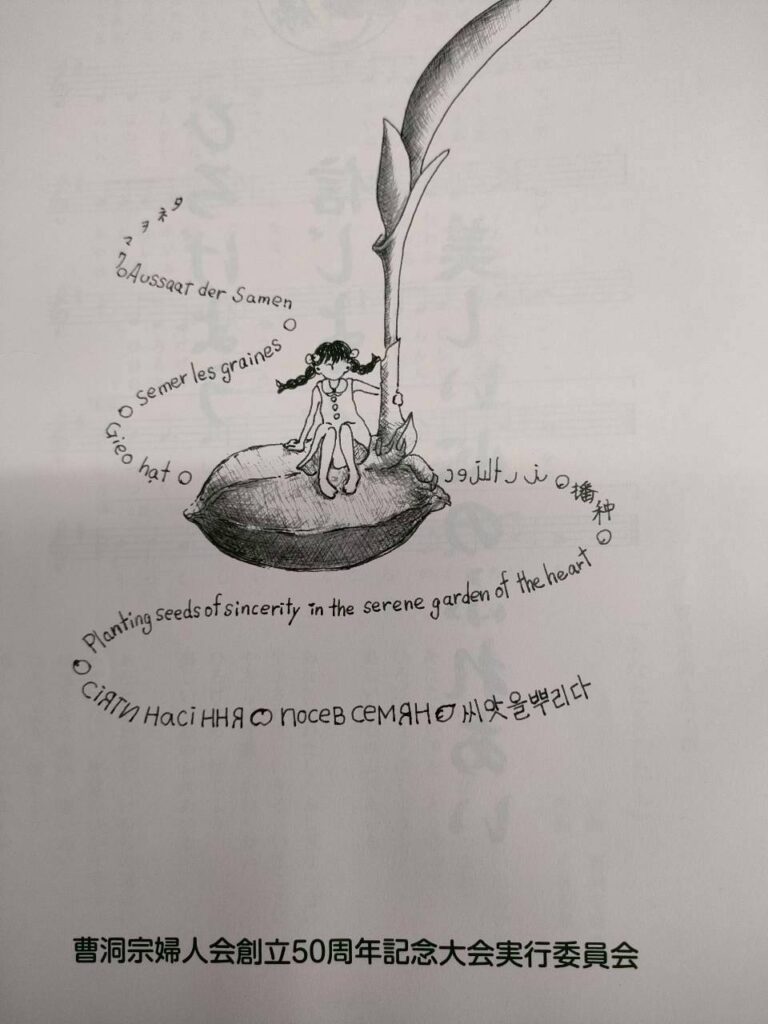 タネヲマク
Aussaat der Samen
Semer les graines
Gieo hạt
播种
Planting seeds of sincerity in the serene garden of the heart
сіяти насіння посев семян 씨앗을뿌리다
曹洞宗婦人会創立50周年記念大会実行委員会